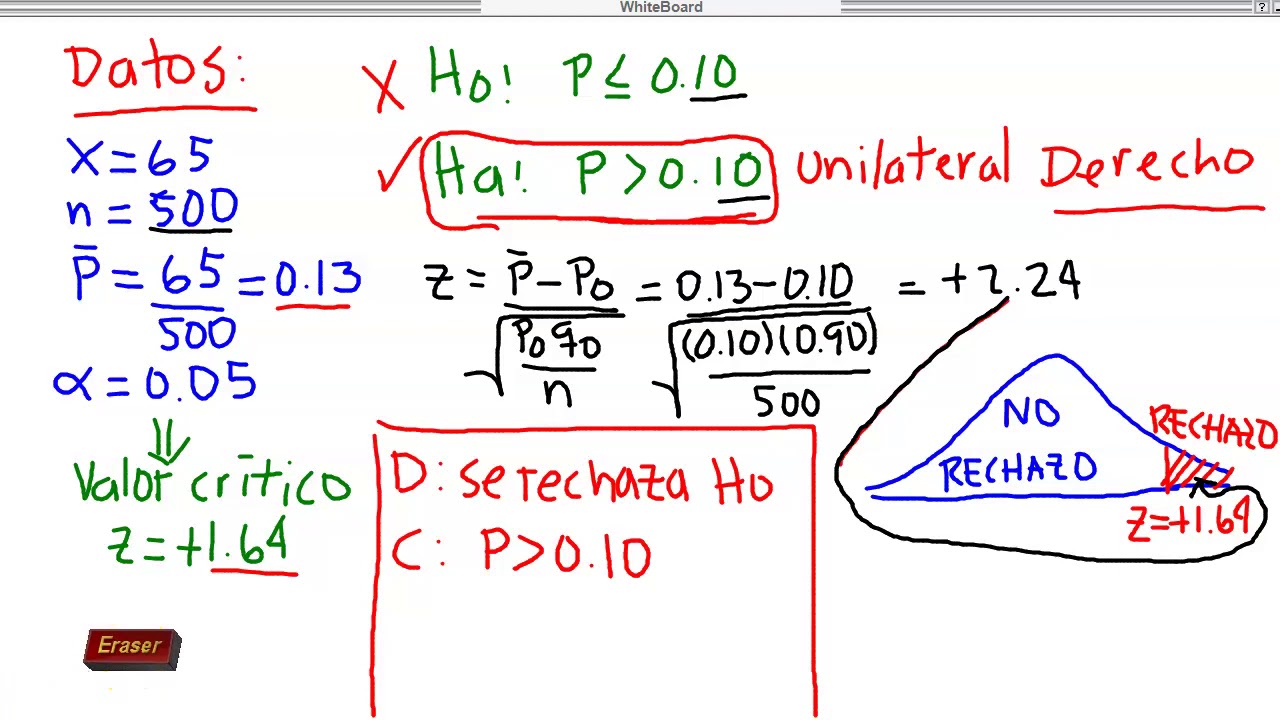 WhiteBoard
Datos:
X = 65
n = 500
p̄ = 65/500 = 0.13
α = 0.05
⇓
Valor crítico
z = +1.64
Eraser
X Ho: P ≤ 0.10
✓ Ha: P > 0.10 unilateral Derecho
z = (p̄ − P₀)/√(P₀q₀/n) = (0.13 − 0.10)/√((0.10)(0.90)/500) = +2.24
NO
RECHAZO
RECHAZO
z=+1.64
D: se rechaza Ho
C: P > 0.10